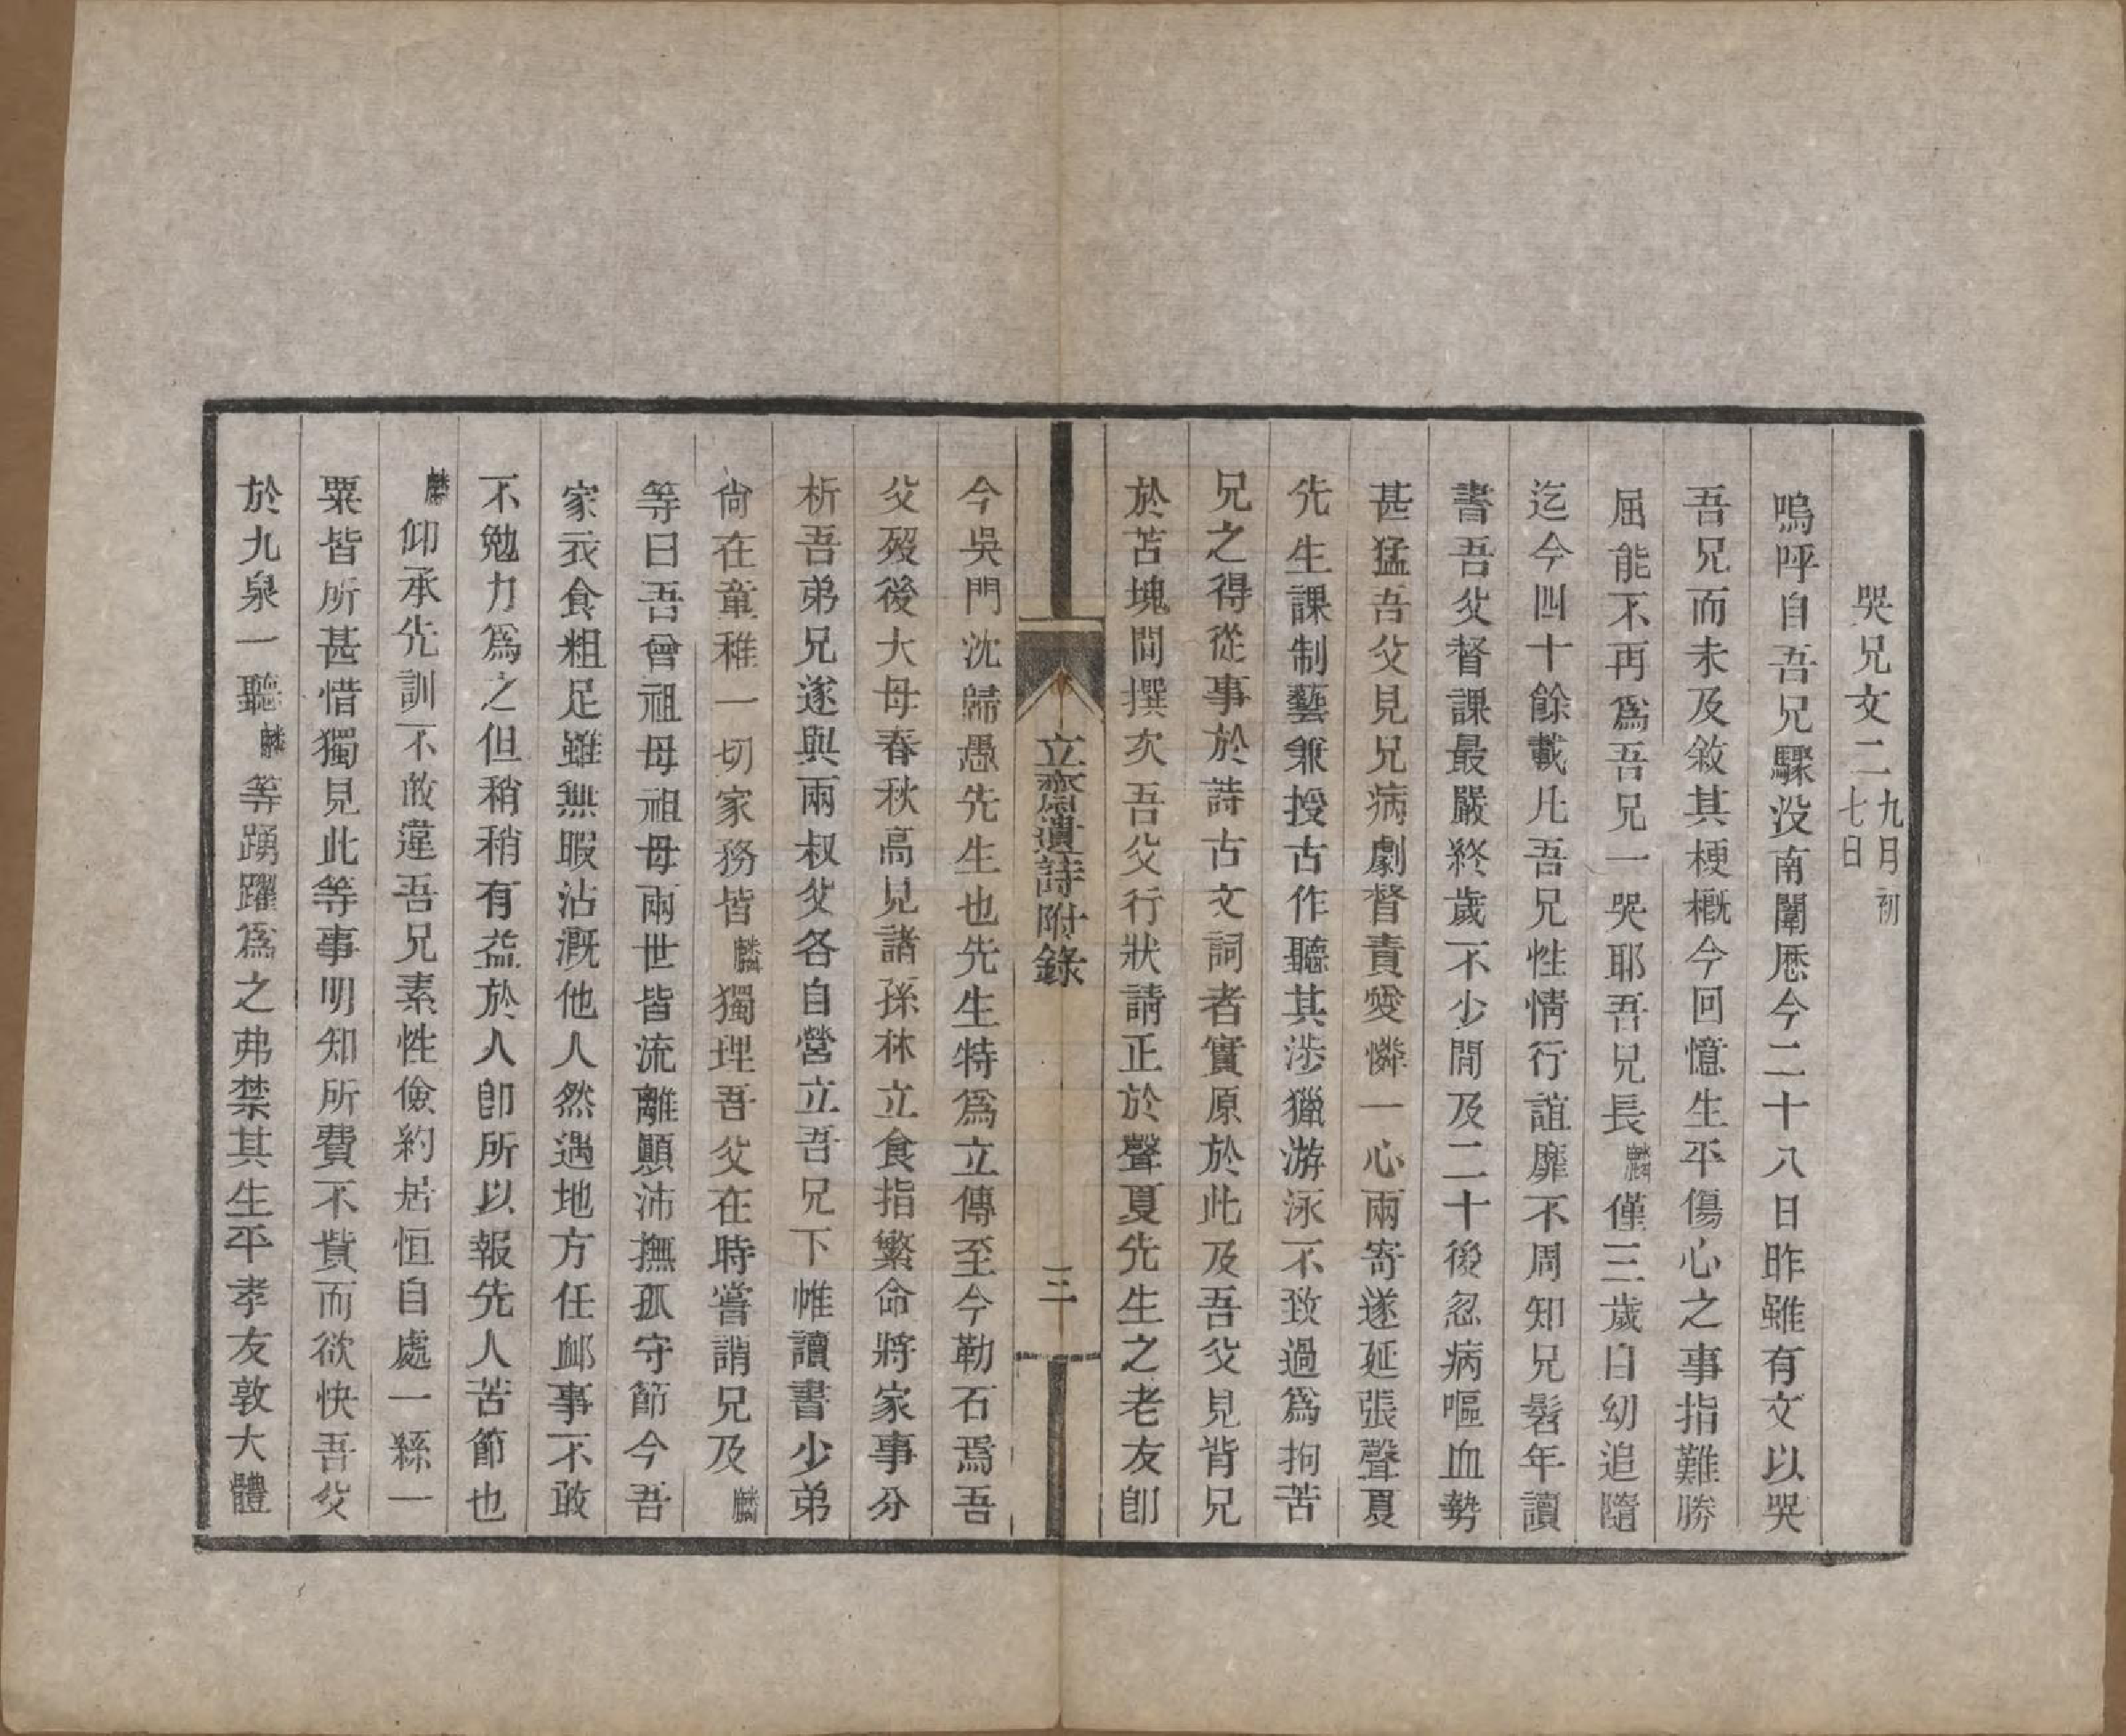 哭兄文二九月初七日
嗚呼自吾兄驟没南闈厯今二十八日昨雖有文以哭
吾兄而未及敘其梗概今回憶生平傷心之事指難勝
屈能不再爲吾兄一哭耶吾兄長麟僅三歲自幼追隨
迄今四十餘載凡吾兄性情行誼靡不周知兄髫年讀
書吾父督課最嚴終歲不少閒及二十後忽病嘔血勢
甚猛吾父見兄病劇督責愛憐一心兩寄遂延張聲夏
先生課制藝兼授古作聽其涉獵游泳不致過爲拘苦
兄之得從事於詩古文詞者實原於此及吾父見背兄
於苫塊間撰次吾父行狀請正於聲夏先生之老友卽
立齋遺詩附錄
三
今吳門沈歸愚先生也先生特爲立傳至今勒石焉吾
父歿後大母春秋高見諸孫林立食指繁命將家事分
析吾弟兄遂與兩叔父各自營立吾兄下帷讀書少弟
尙在童稚一切家務皆麟獨理吾父在時嘗謂兄及麟
等曰吾曾祖母祖母兩世皆流離顚沛撫孤守節今吾
家衣食粗足雖無暇沾漑他人然遇地方任卹事不敢
不勉力爲之但稍稍有益於人卽所以報先人苦節也
麟仰承先訓不敢違吾兄素性儉約居恒自處一縣一
粟皆所甚惜獨見此等事明知所費不貲而欲快吾父
於九泉一聽麟等踴躍爲之弗禁其生平孝友敦大體